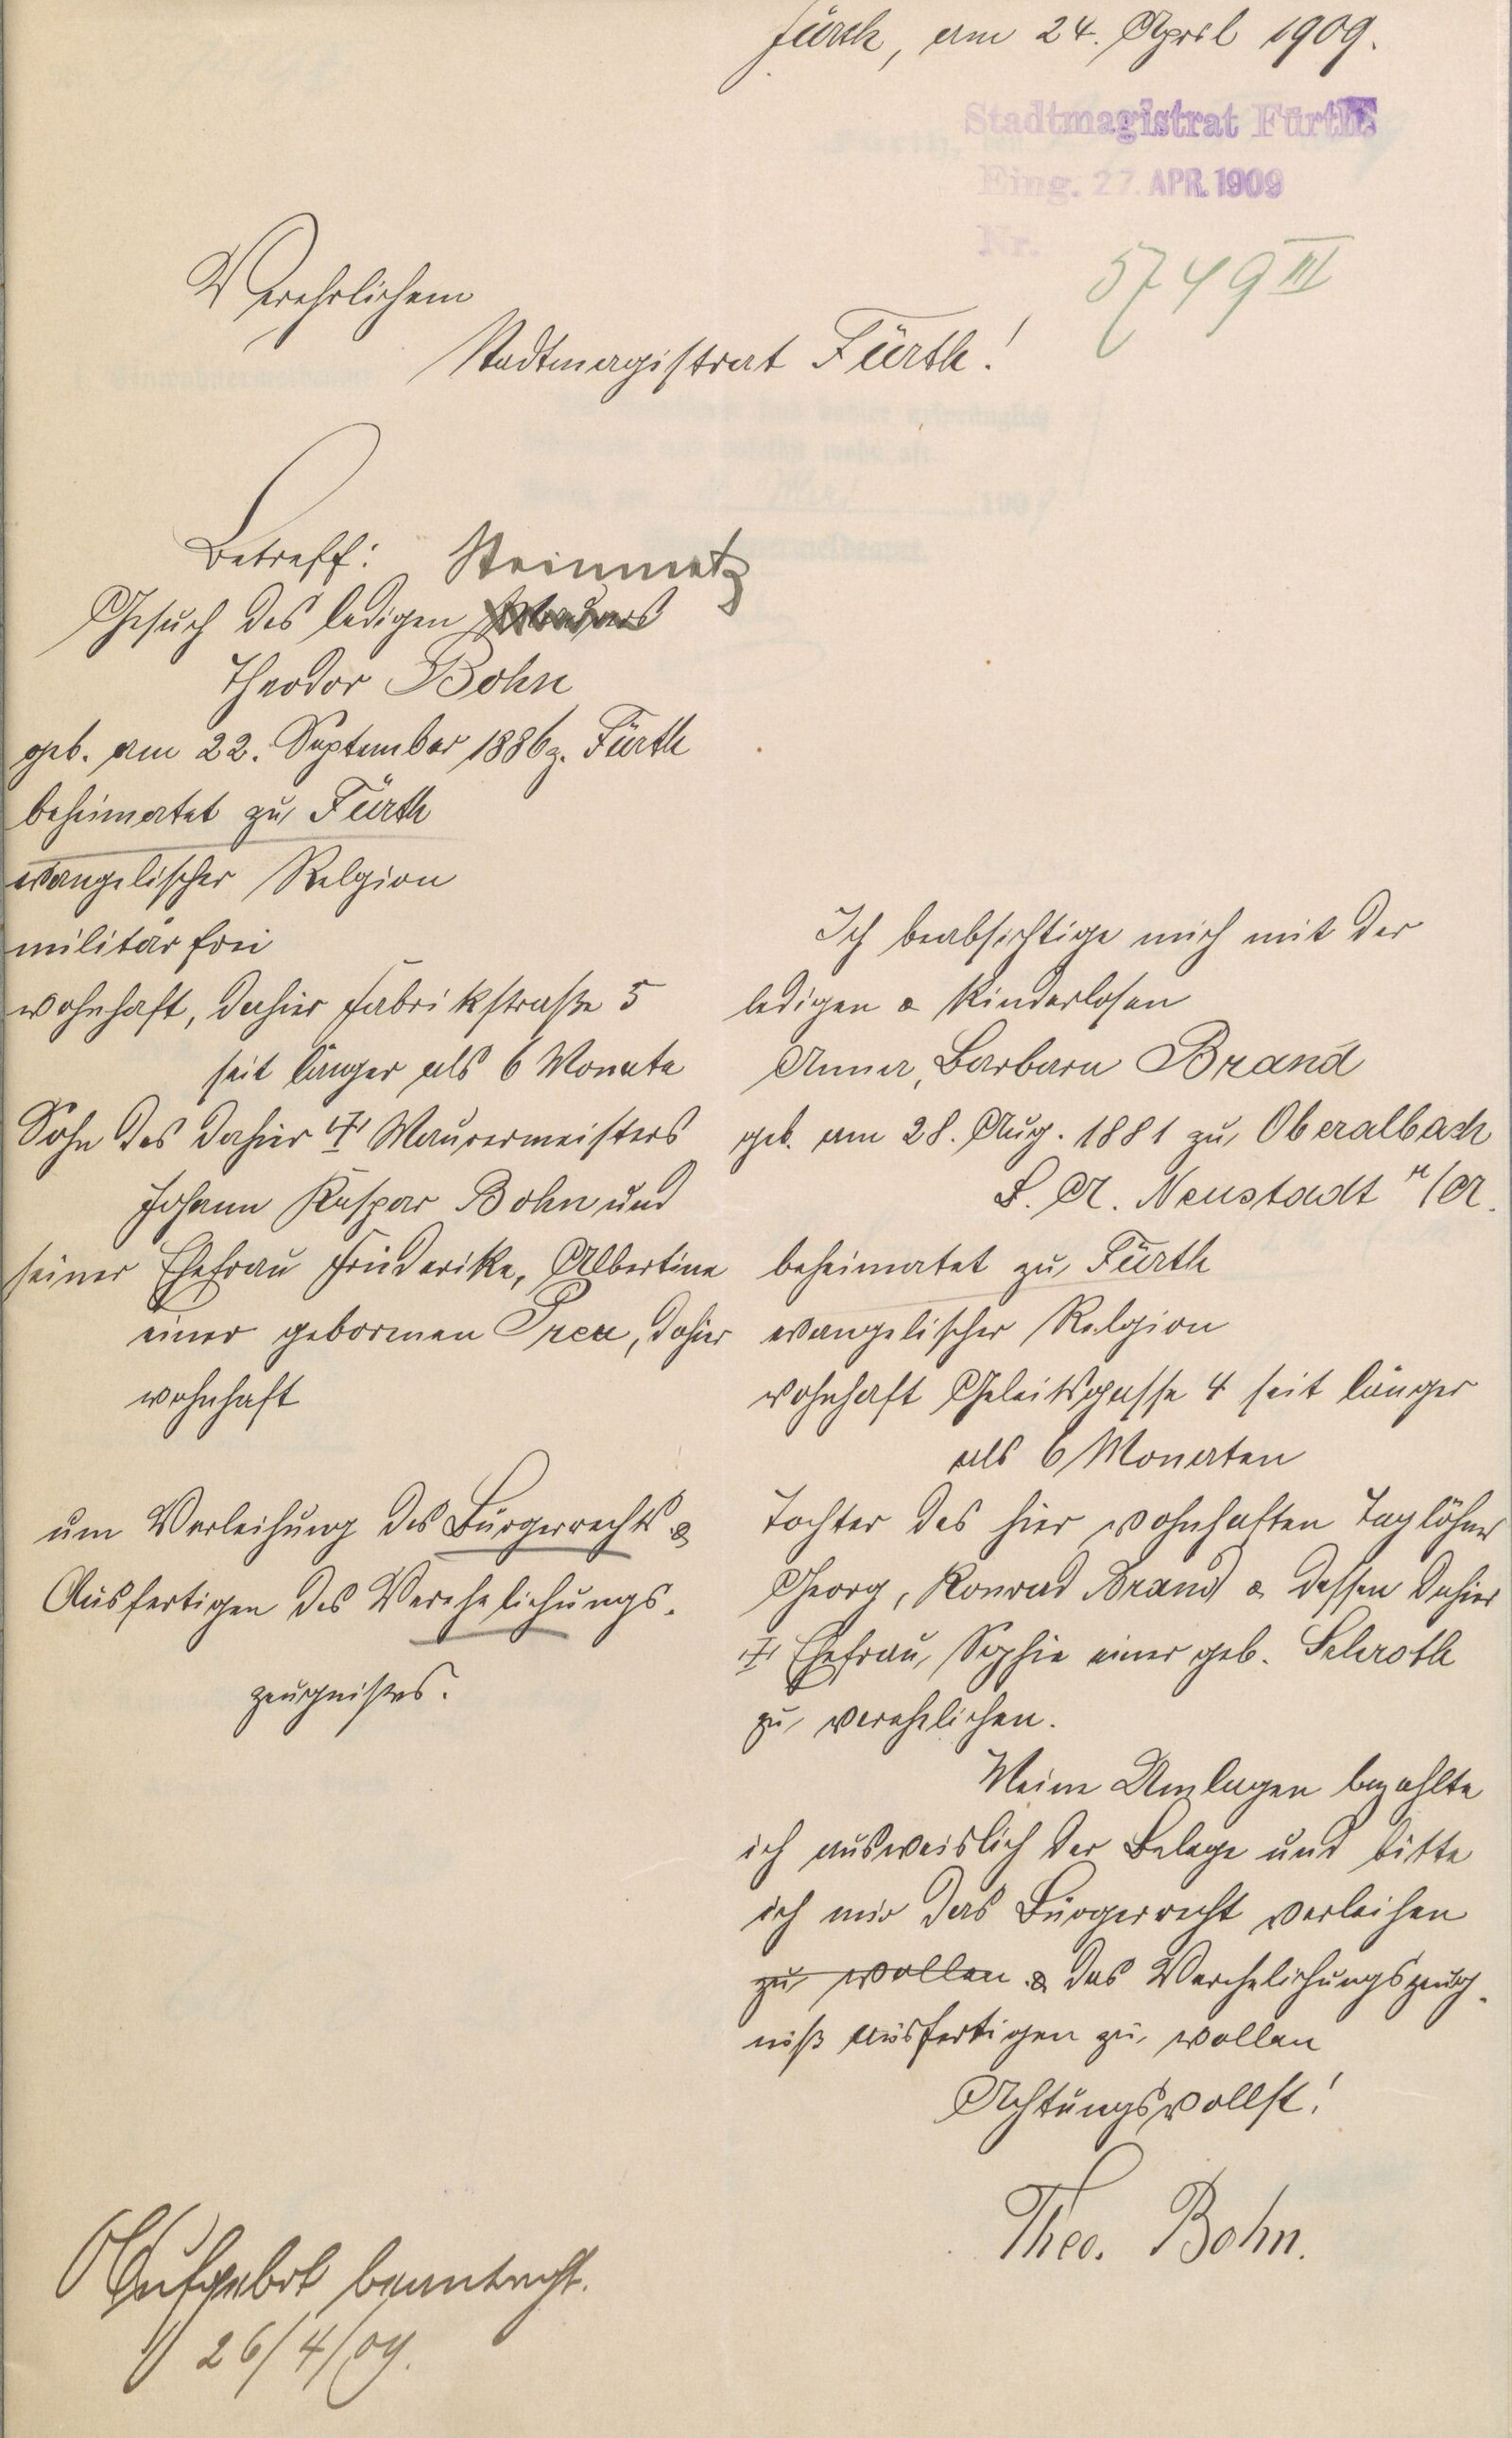 Fürth, am 24. April 1909.
Stadtmagistrat Fürth
Eing. 27. APR. 1909
Nr.
5749 III
Verehrlichem
Stadtmagistrat Fürth!
Betreff: Steinmetz
Gesuch des ledigen
Theodor Bohn
geb. am 22. September 1886 z. Fürth
beheimatet zu Fürth
evangelischer Relgion
militär frei
wohnhaft, dahier Fabrikstraße 5
seit länger als 6 Monate
Sohn des dahier † Maurermeisters
Johann Kaspar Bohn und
seiner Ehefrau Friederike, Albertine
einer gebornen Prex, dahier
wohnhaft
um Verleihung des Bürgerrechts &
Ausfertigen des Verehelichungs-
zeugnißes.
Ich beabsichtige mich mit der
ledigen & kinderlosen
Anna, Barbara Brand
geb. am 28. Aug. 1881 zu Oberalbach
B. A. Neustadt a/A.
beheimatet zu Fürth
evangelischer Relgion
wohnhaft Geleitsgasse 4 seit länger
als 6 Monaten
Tochter des hier wohnhaften Taglöhners
Georg, Konrad Brand & dessen dahier
† Ehefrau, Sophie einer geb. Schroth
zu verehelichen.
Meine Umlagen bezahlte
ich ausweislich der Belege und bitte
ich mir das Bürgerrecht verleihen
zu wollen & das Verehelichungszeug-
niß ausfertigen zu wollen
Achtungsvollst!
Theo. Bohn.
Aufgebot beantragt.
26/4/09.